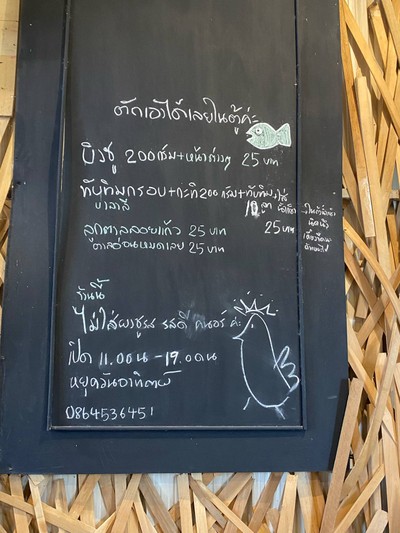 ตักเอาได้เลยในตู้ค่ะ
บิงซู 200 กรัม+หน้าต่างๆ 25 บาท
ทับทิมกรอบ+กะทิ 200 กรัม+ทับทิมใส่
10 ลูก
25 บาท
ลูกตาลลอยแก้ว 25 บาท
ตาลอ่อนหมดเลย 25 บาท
ร้านนี้
ไม่ใส่ผงชูรส รสดี คนอร์ ค่ะ
เปิด 11.00น - 19.00น
หยุดวันอาทิตย์
0864536451